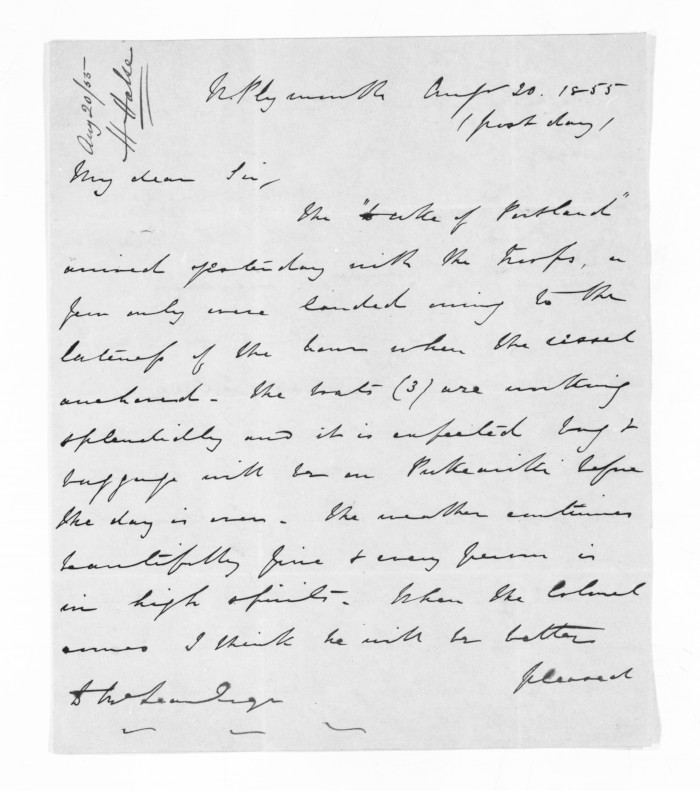 Aug 20/55
H Halse
N. Plymouth Augt 20. 1855
(post day)
My dear Sir,
The "Duke of Portland"
arrived yesterday with the troops, a
few only were landed owing to the
lateness of the hour when the vessel
anchored - The boats (3) are working
splendidly and it is expected bag &
baggage will be on Pukeariki before
the day is over - The weather continues
beautifully fine & every person is
in high spirits - When the Colonel
comes I think he will be better
pleased
D McLean Esqr